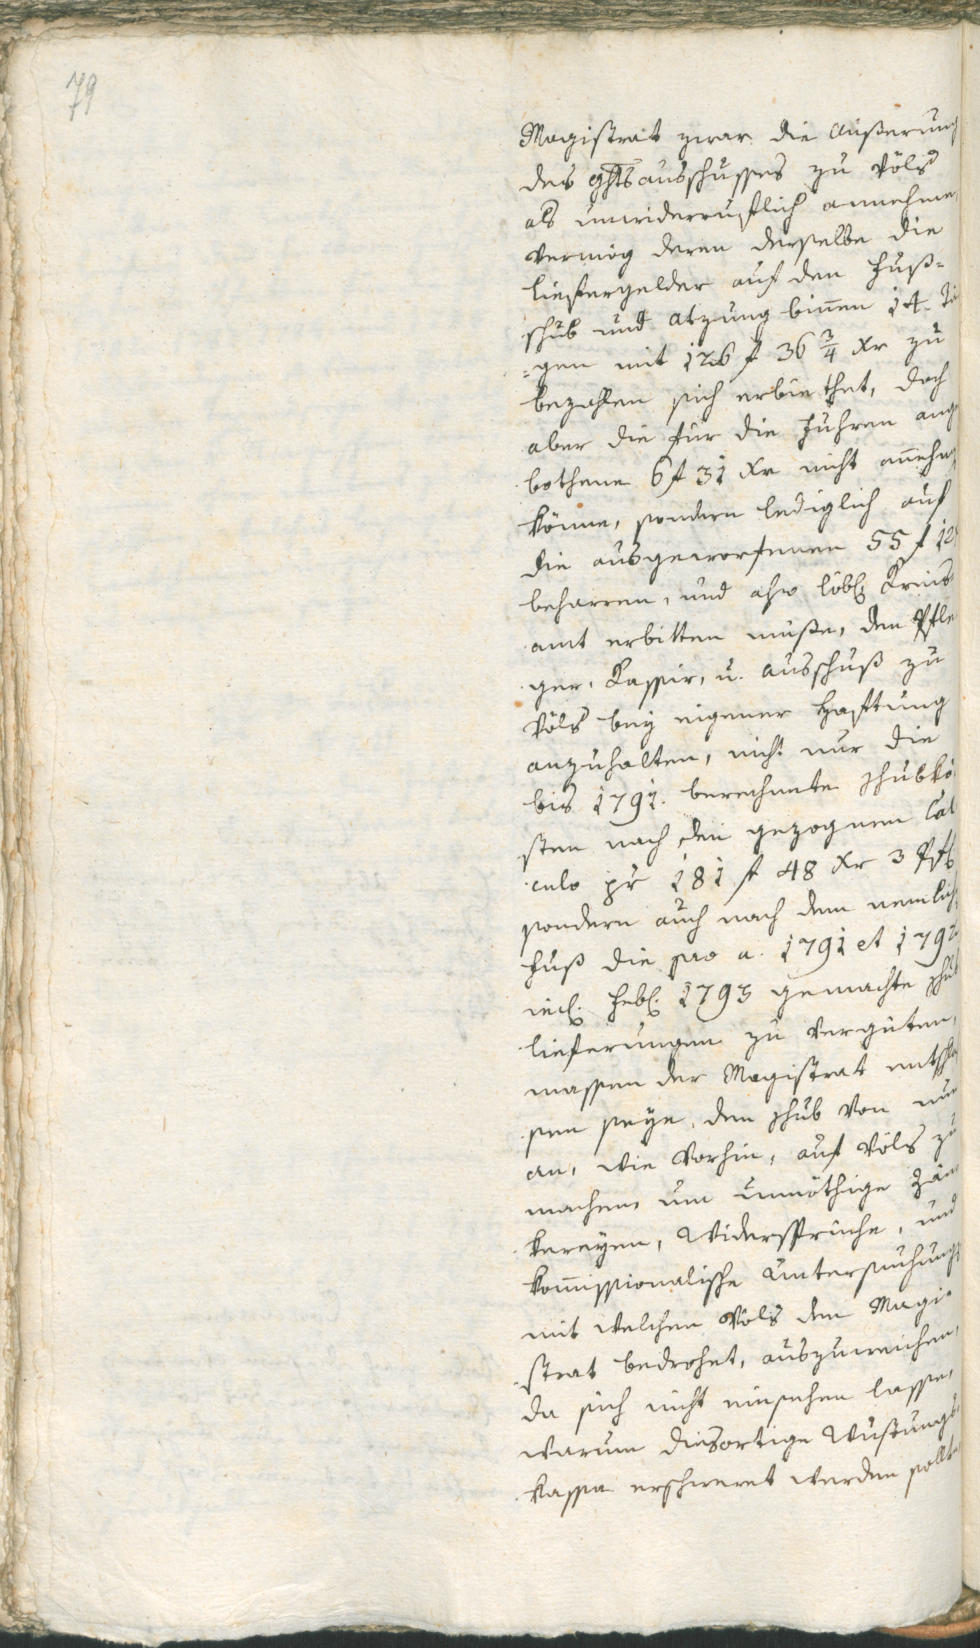 79
Magistrat zwar die Äußerung
des ghtsausschusses zu Völs
als unwiderruflich annehme,
vermög deren derselbe die
liefergelder auf den Fuß-
schub und atzung binnen 14. Tä
=gen mit 126 f 36 3/4 xr zu
bezahlen sich erbiethet, doch
aber die für die Fuhren ange
bothene 6 f 31 xr nicht annehmen
könne, sondern lediglich auf
die ausgeworfenen 55 f 12
beharren, und also löbl. Kreis
amt erbitten müße, den Pfle
ger, Kassir, u. ausschuß zu
Völs bey eigener Hafttung
anzuhalten, nicht nur die
bis 1791. berechnete schubkö
sten nach den gezognen Cal
culo pr 181 f 48 xr 3 Pf
sondern auch nach dem nemlich
Fuß die pro a. 1791 et 1792
incl. Febr. 1793 gemachte schub
lieferungen zu vergüten,
massen der Magistrat entschlo
sen seye, den schub von nun
an, wie vorhin, auf Völs zu
machen, um unnöthige Zän
kereyen, Widersprüche, und
kommissionalische Untersuchungen
mit welchen Völs dem Magi-
strat bedrohet, auszuweichen,
da sich nicht einsehen lasse,
warum diesortige Wustungs-
kassa erschweret werden sollte